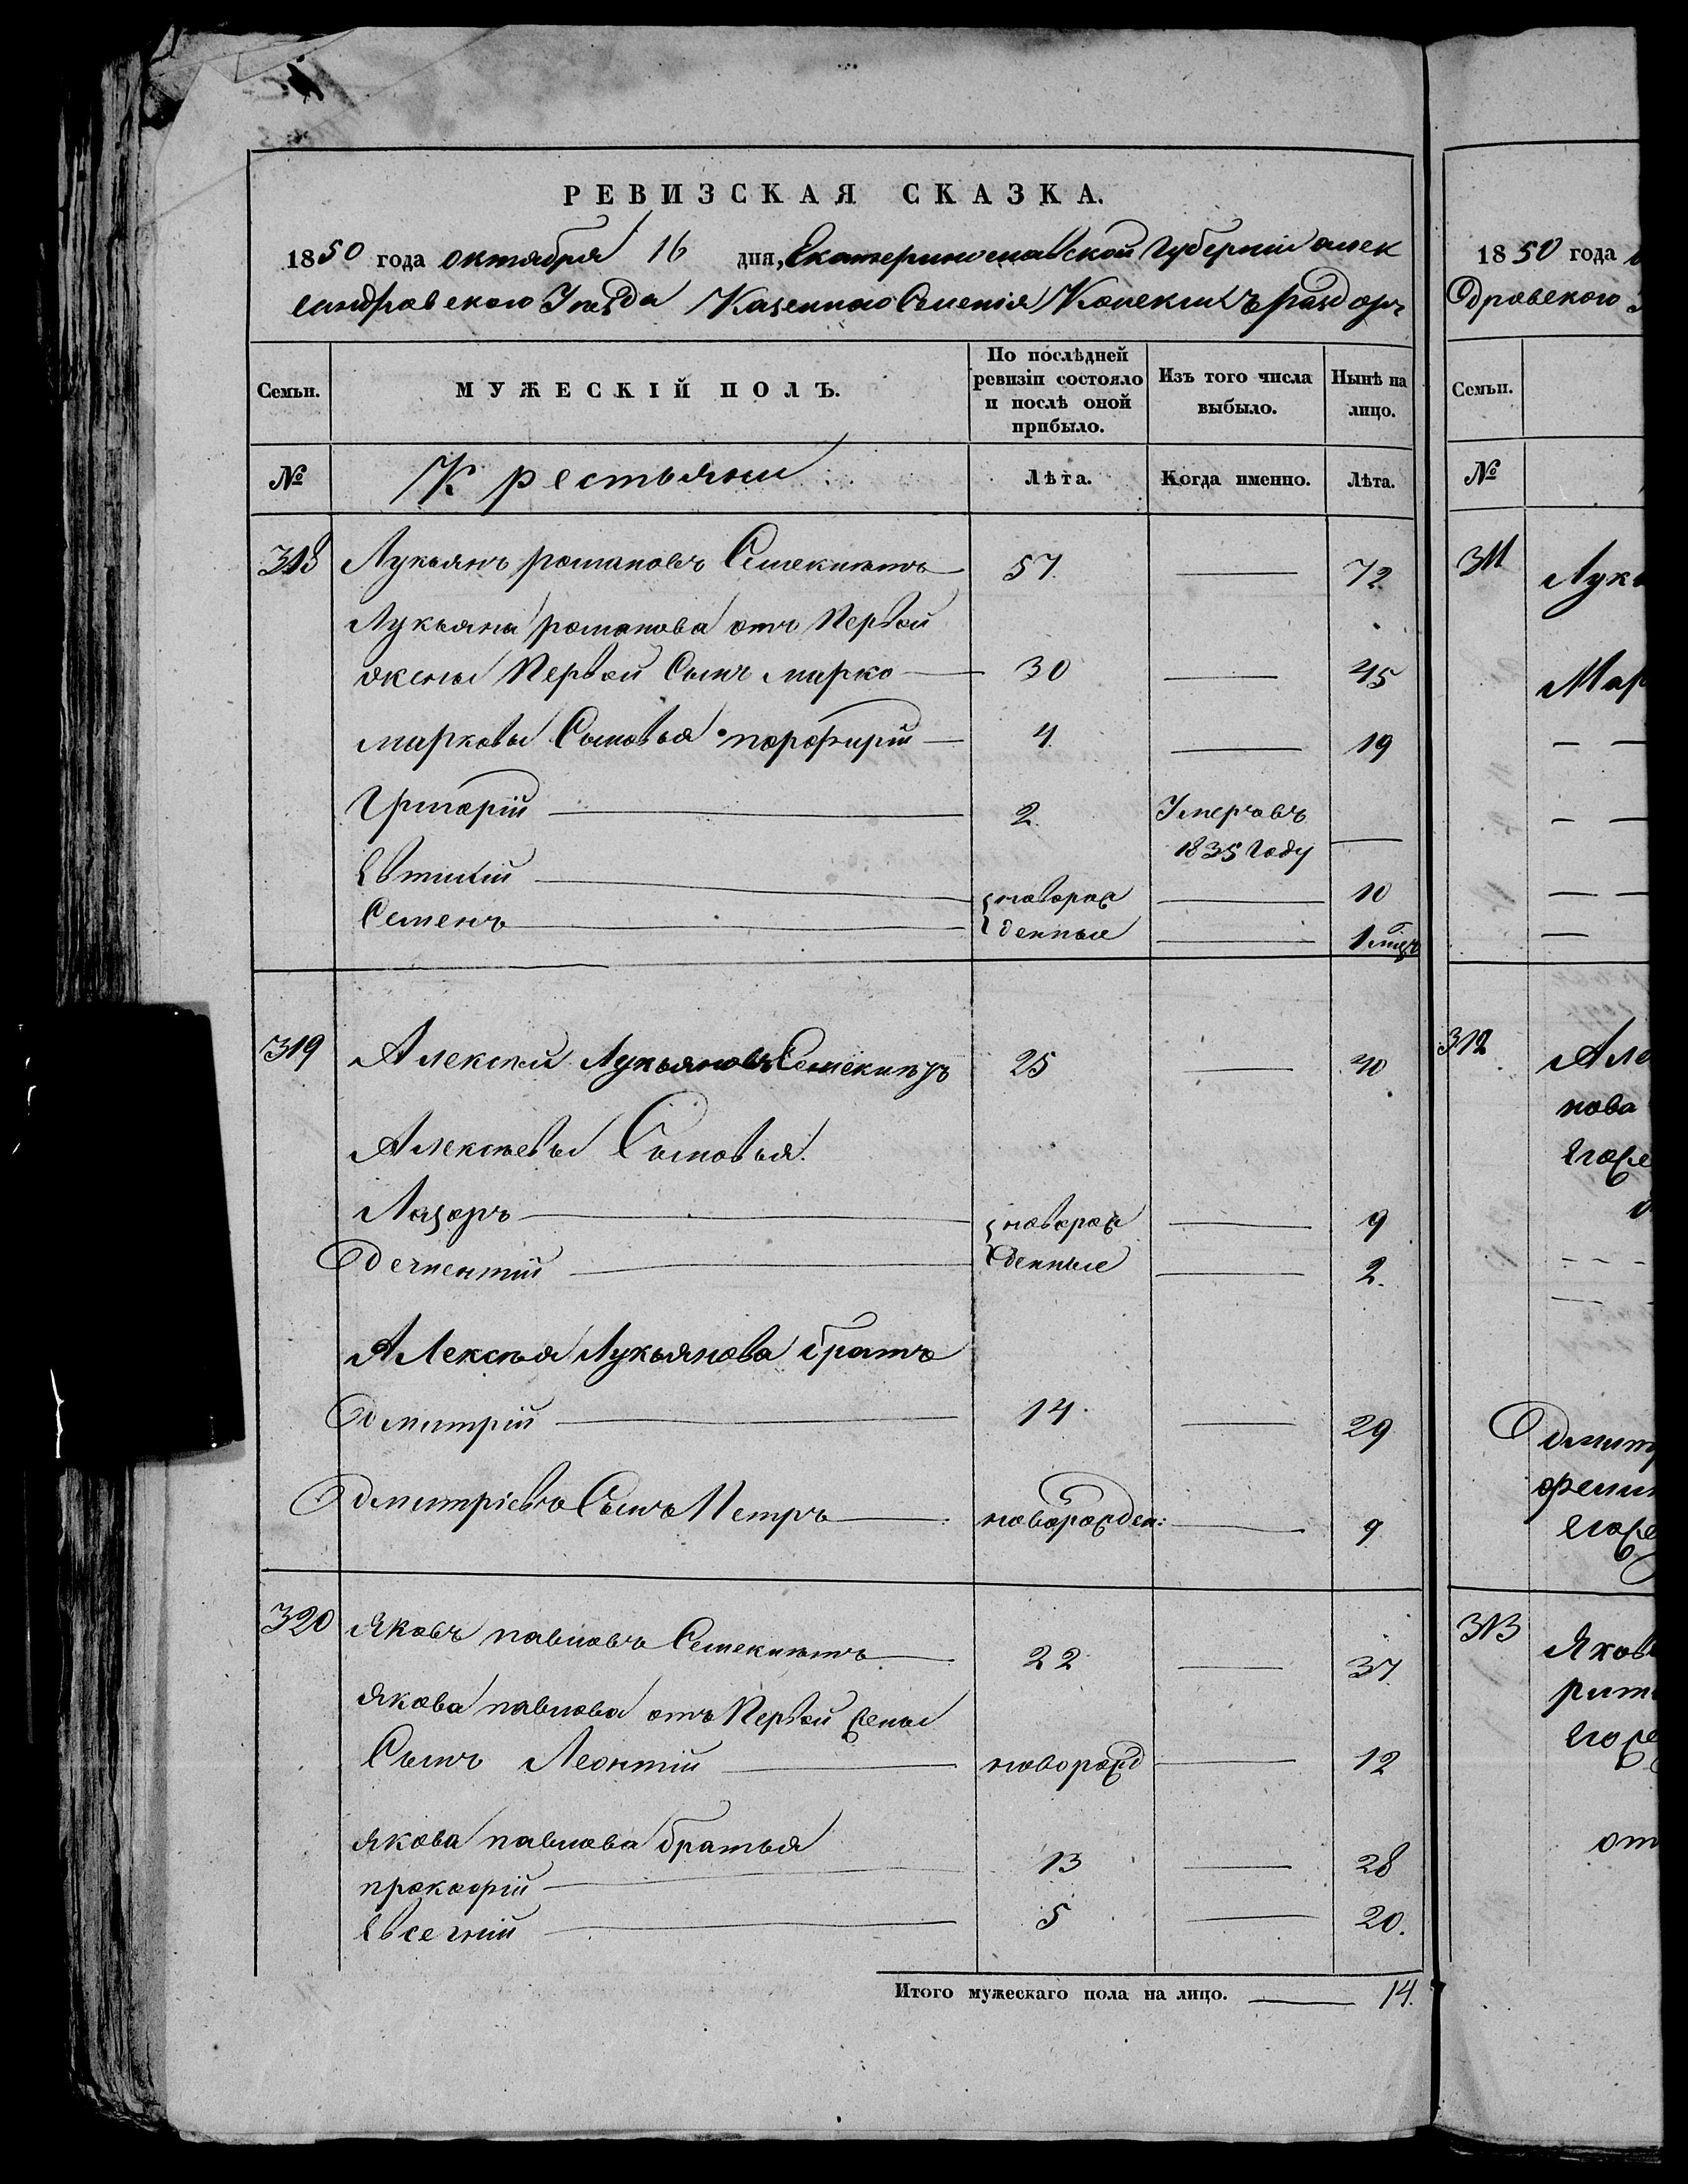 РЕВИЗСКАЯ СКАЗКА.
1850 года октября 16 дня, Екатеринославской Губернiи алек
сандровского Уѣзда Казенного Селенiя Конскихъ раздоръ
Семьи.
МУЖЕСКІЙ ПОЛЪ.
По послѣдней ревизіи состояло и послѣ оной прибыло.
Изъ того числа выбыло.
Нынѣ на лицо.
№ Крестьяни Лѣта. Когда именно. Лѣта.
318 Лукьянъ романовъ 57. — 72
Лукьяна романова отъ Первой
жены Первой Сынъ марко — 30 — 45
марковы Сыновья порфирiй — 4 — 19
Григорiй — 2 Умеръ въ
1835 Году —
Евтихiй — новорож — 10
Семенъ — денные — 1 мѣц
319 Алексѣй Лукьяновъ 25 — 40
Алексѣевы Сыновья
Лазорь — новорож — 9
дементiй — денные — 2.
Алексѣя Лукьянова братъ
дмитрiй — 14. — 29
дмитрiевъ Сынъ Петръ — новорожден: — 9
320 Яковъ павловъ 22 — 37
Якова павлова отъ Первой жены
Сынъ Леонтiй — новорожд — 12
Якова павлова братья
прокофiй — 13 — 28
Евсегнiй — 5 — 20.
Итого мужескаго пола на лицо. — 14.
1850 года
дровского
Семьи.
№
311 Лукь
Мар
312 Але
нова
дмит
313 Яков
от